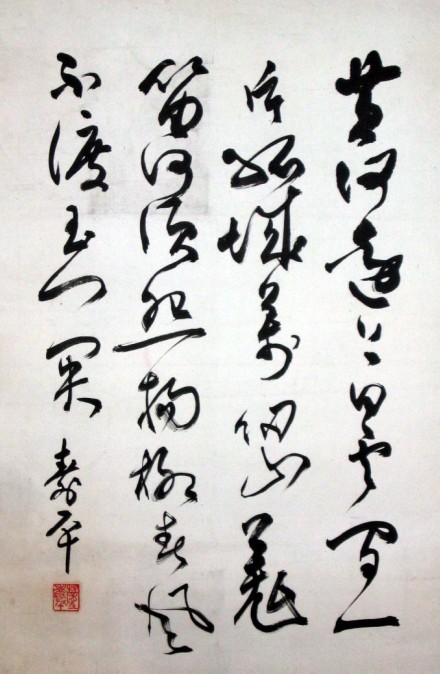 黄河遠上白雲間一
片孤城萬仞山羌
笛何須怨楊柳春風
不渡玉門關
壽平